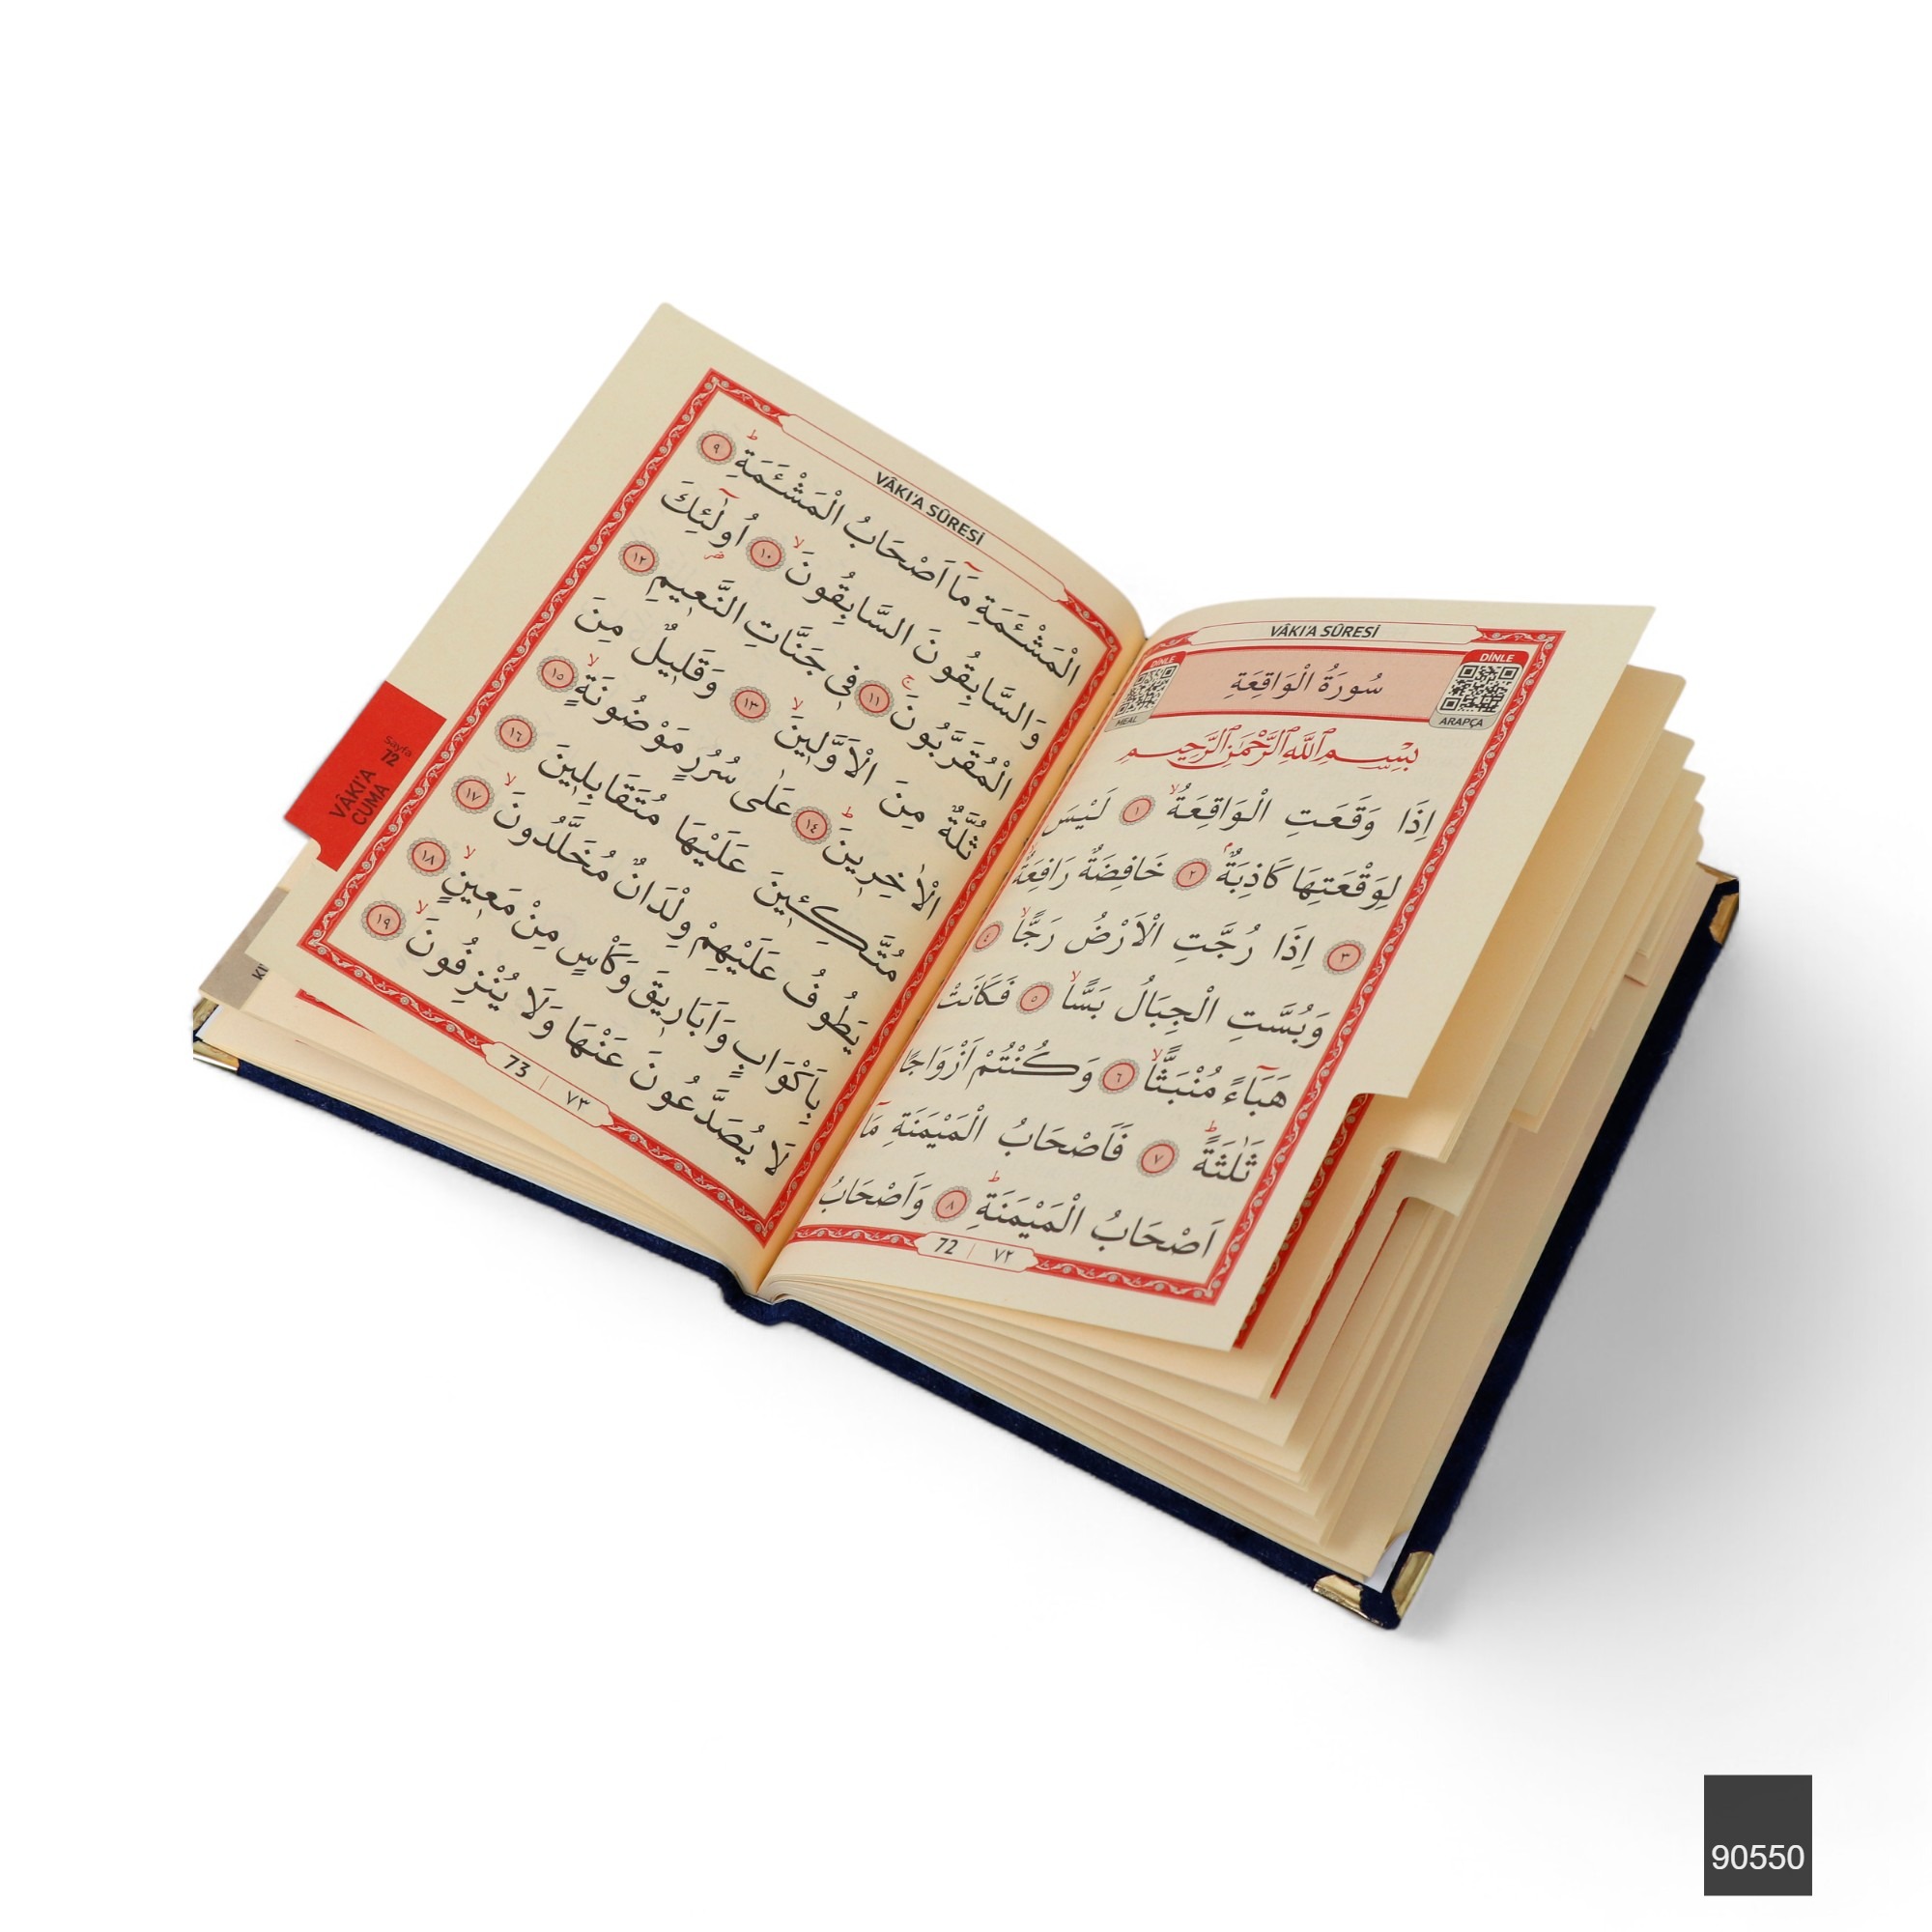 VÂKI'A SÛRESİ
DİNLE
MEAL
سُورَةُ الْوَاقِعَةِ
DİNLE
ARAPÇA
بِسْمِ ٱللَّهِ ٱلرَّحْمَٰنِ ٱلرَّحِيمِ
اِذَا وَقَعَتِ الْوَاقِعَةُۙ ﴿١﴾ لَيْسَ
لِوَقْعَتِهَا كَاذِبَةٌۢ ﴿٢﴾ خَافِضَةٌ رَافِعَةٌۙ
﴿٣﴾ اِذَا رُجَّتِ الْاَرْضُ رَجًّاۙ ﴿٤﴾
وَبُسَّتِ الْجِبَالُ بَسًّاۙ ﴿٥﴾ فَكَانَتْ
هَبَٓاءً مُنْبَثًّاۙ ﴿٦﴾ وَكُنْتُمْ اَزْوَاجًا
ثَلٰثَةًۜ ﴿٧﴾ فَاَصْحَابُ الْمَيْمَنَةِ مَٓا
اَصْحَابُ الْمَيْمَنَةِۜ ﴿٨﴾ وَاَصْحَابُ
72 | ٧٢
VÂKI'A SÛRESİ
الْمَشْـَٔمَةِ مَٓا اَصْحَابُ الْمَشْـَٔمَةِۜ ﴿٩﴾
وَالسَّابِقُونَ السَّابِقُونَۙ ﴿١٠﴾ اُو۬لٰٓئِكَ
الْمُقَرَّبُونَۚ ﴿١١﴾ ف۪ي جَنَّاتِ النَّع۪يمِ ﴿١٢﴾
ثُلَّةٌ مِنَ الْاَوَّل۪ينَۙ ﴿١٣﴾ وَقَل۪يلٌ مِنَ
الْاٰخِر۪ينَۜ ﴿١٤﴾ عَلٰى سُرُرٍ مَوْضُونَةٍۙ ﴿١٥﴾
مُتَّكِـ۪ٔينَ عَلَيْهَا مُتَقَابِل۪ينَ ﴿١٦﴾
يَطُوفُ عَلَيْهِمْ وِلْدَانٌ مُخَلَّدُونَۙ ﴿١٧﴾
بِاَكْوَابٍ وَاَبَار۪يقَ وَكَأْسٍ مِنْ مَع۪ينٍۙ ﴿١٨﴾
لَا يُصَدَّعُونَ عَنْهَا وَلَا يُنْزِفُونَۙ ﴿١٩﴾
73 | ٧٣
Sayfa
72
VÂKI'A
CUMA
90550